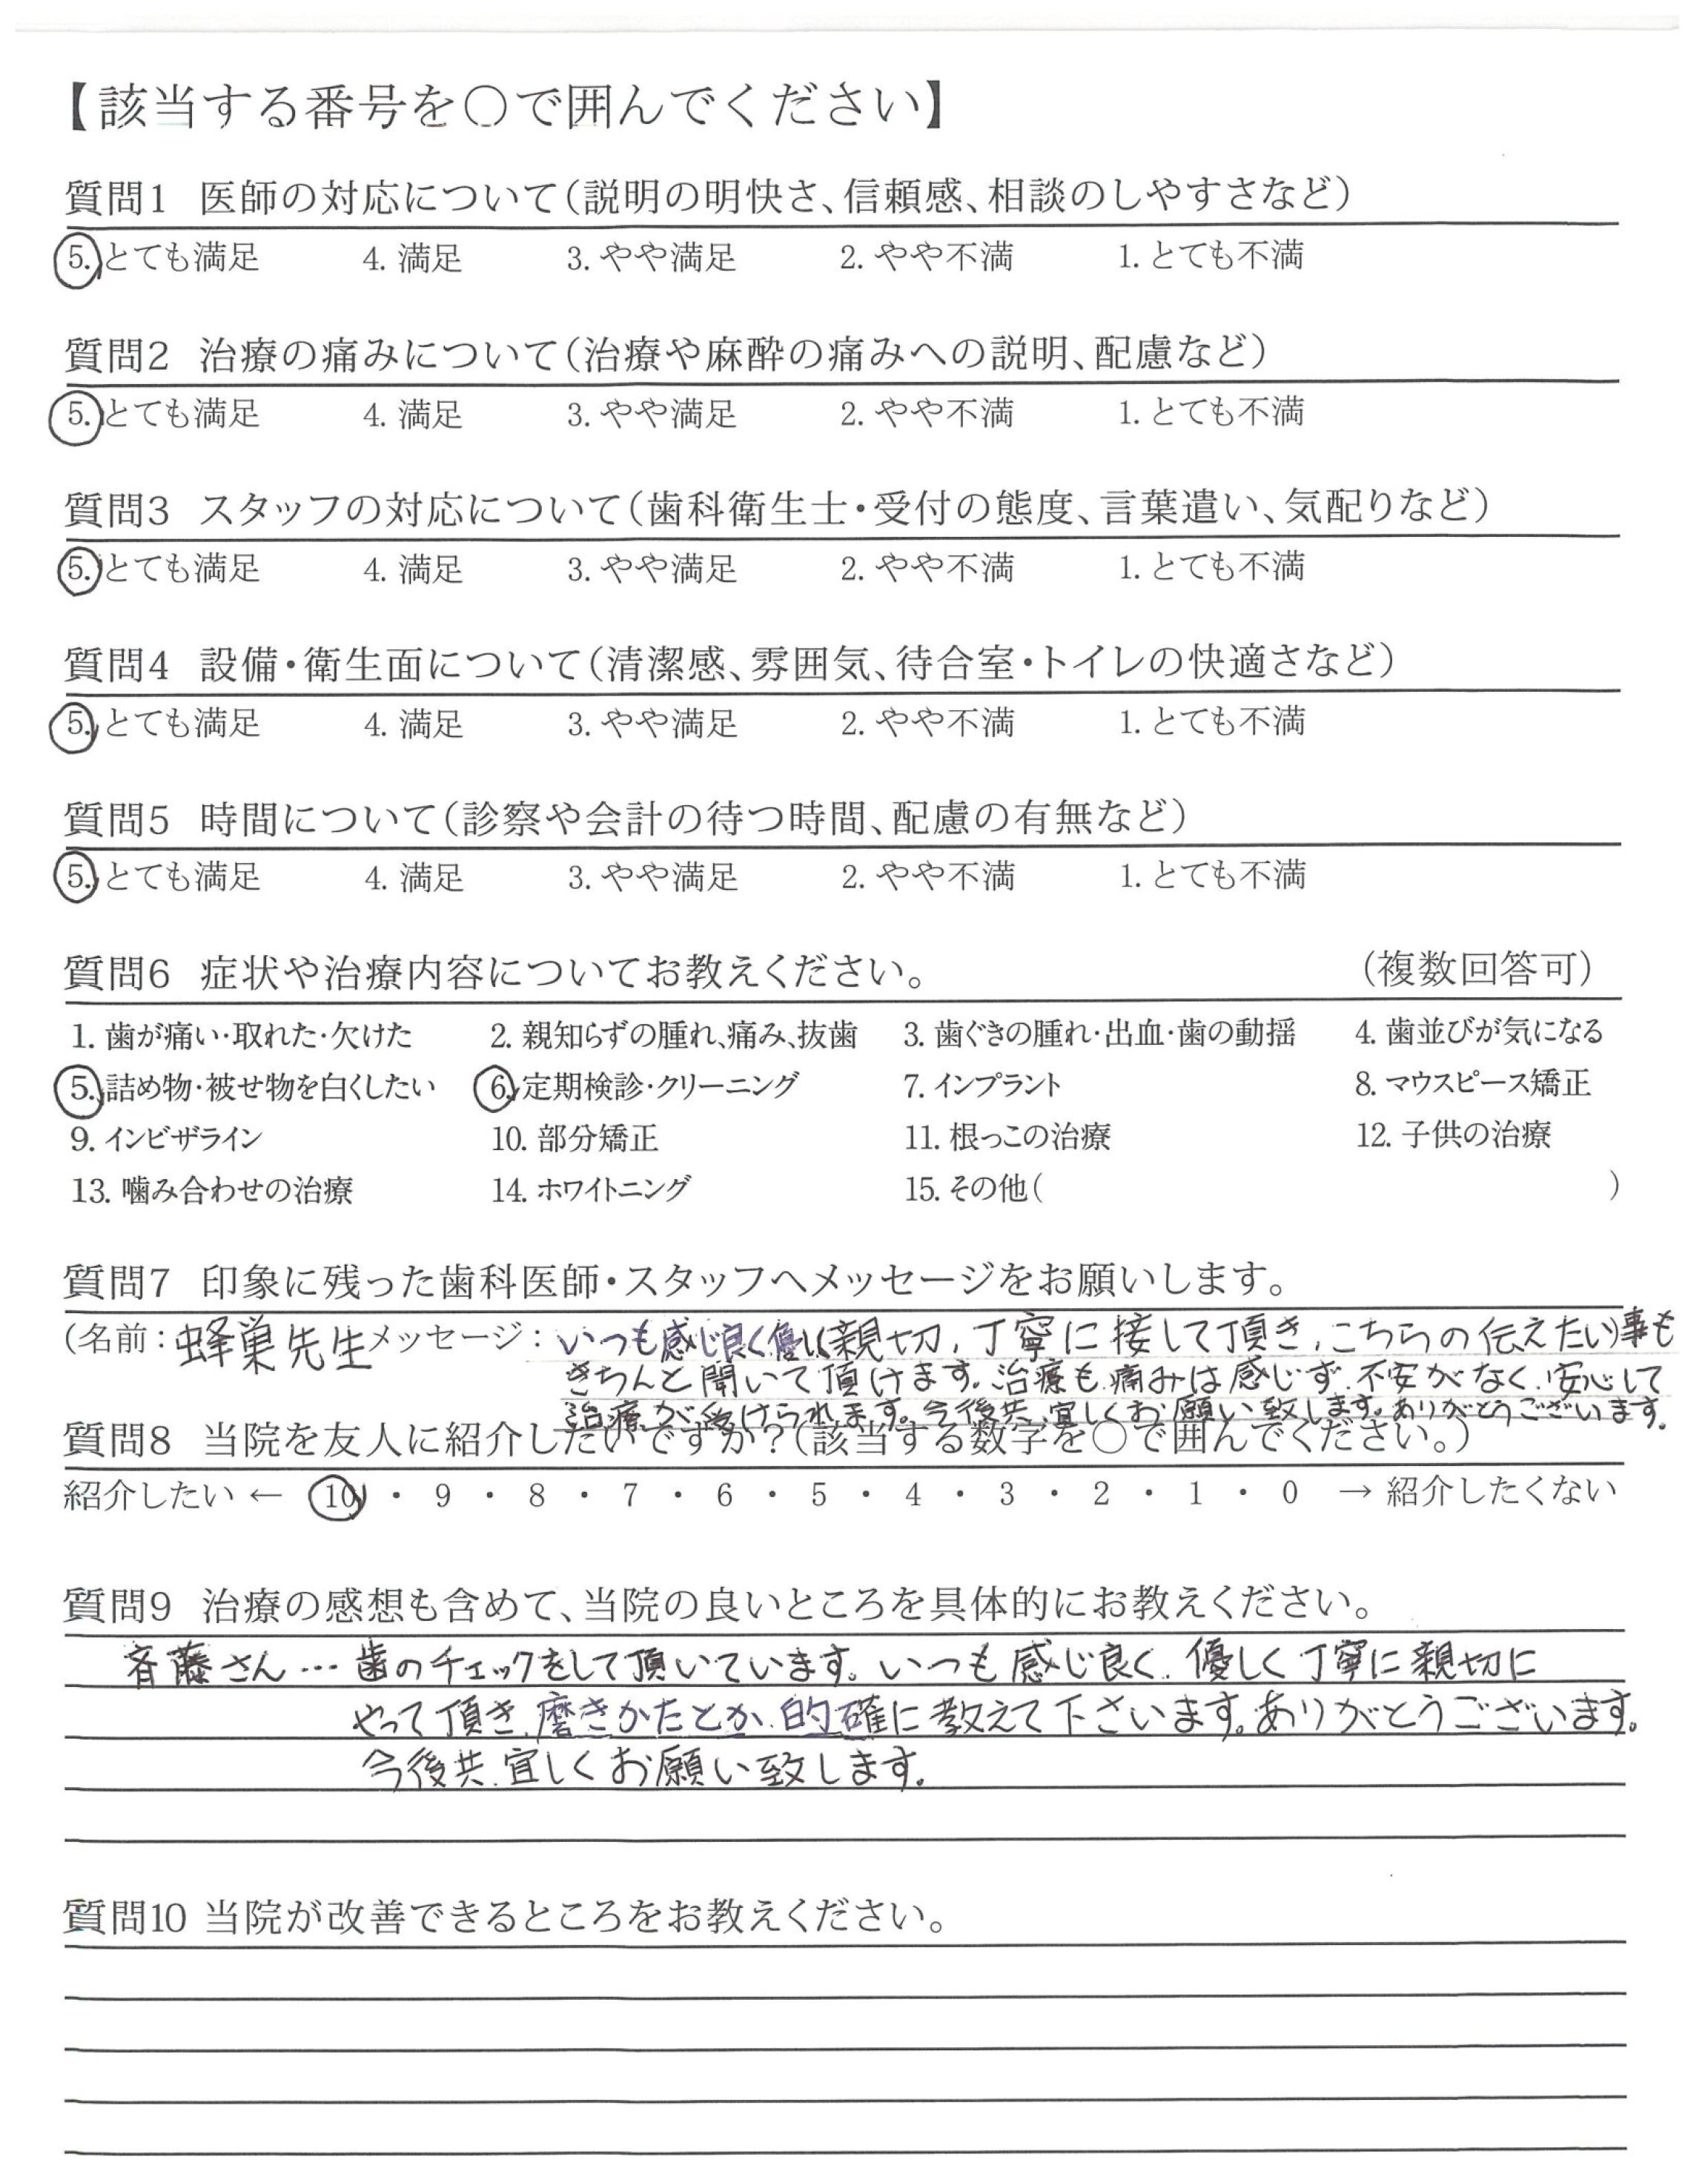 【該当する番号を○で囲んでください】
質問1 医師の対応について(説明の明快さ、信頼感、相談のしやすさなど)
5. とても満足 4. 満足 3. やや満足 2. やや不満 1. とても不満
質問2 治療の痛みについて(治療や麻酔の痛みへの説明、配慮など)
5. とても満足 4. 満足 3. やや満足 2. やや不満 1. とても不満
質問3 スタッフの対応について(歯科衛生士・受付の態度、言葉遣い、気配りなど)
5. とても満足 4. 満足 3. やや満足 2. やや不満 1. とても不満
質問4 設備・衛生面について(清潔感、雰囲気、待合室・トイレの快適さなど)
5. とても満足 4. 満足 3. やや満足 2. やや不満 1. とても不満
質問5 時間について(診察や会計の待つ時間、配慮の有無など)
5. とても満足 4. 満足 3. やや満足 2. やや不満 1. とても不満
質問6 症状や治療内容についてお教えください。 (複数回答可)
1. 歯が痛い・取れた・欠けた 2. 親知らずの腫れ、痛み、抜歯 3. 歯ぐきの腫れ・出血・歯の動揺 4. 歯並びが気になる
5. 詰め物・被せ物を白くしたい 6. 定期検診・クリーニング 7. インプラント 8. マウスピース矯正
9. インビザライン 10. 部分矯正 11. 根っこの治療 12. 子供の治療
13. 噛み合わせの治療 14. ホワイトニング 15. その他( )
質問7 印象に残った歯科医師・スタッフへメッセージをお願いします。
(名前: 蜂巣先生 メッセージ: いつも感じ良く優しく親切, 丁寧に接して頂き, こちらの伝えたい事も
きちんと聞いて頂けます。治療も痛みは感じず、不安がなく、安心して
治療が受けられます。今後共、宜しくお願い致します。ありがとうございます。
質問8 当院を友人に紹介したいですか?(該当する数字を○で囲んでください。)
紹介したい ← 10 ・ 9 ・ 8 ・ 7 ・ 6 ・ 5 ・ 4 ・ 3 ・ 2 ・ 1 ・ 0 → 紹介したくない
質問9 治療の感想も含めて、当院の良いところを具体的にお教えください。
斉藤さん… 歯のチェックをして頂いています。いつも感じ良く、優しく丁寧に親切に
やって頂き、磨きかたとか、的確に教えて下さいます。ありがとうございます。
今後共、宜しくお願い致します。
質問10 当院が改善できるところをお教えください。